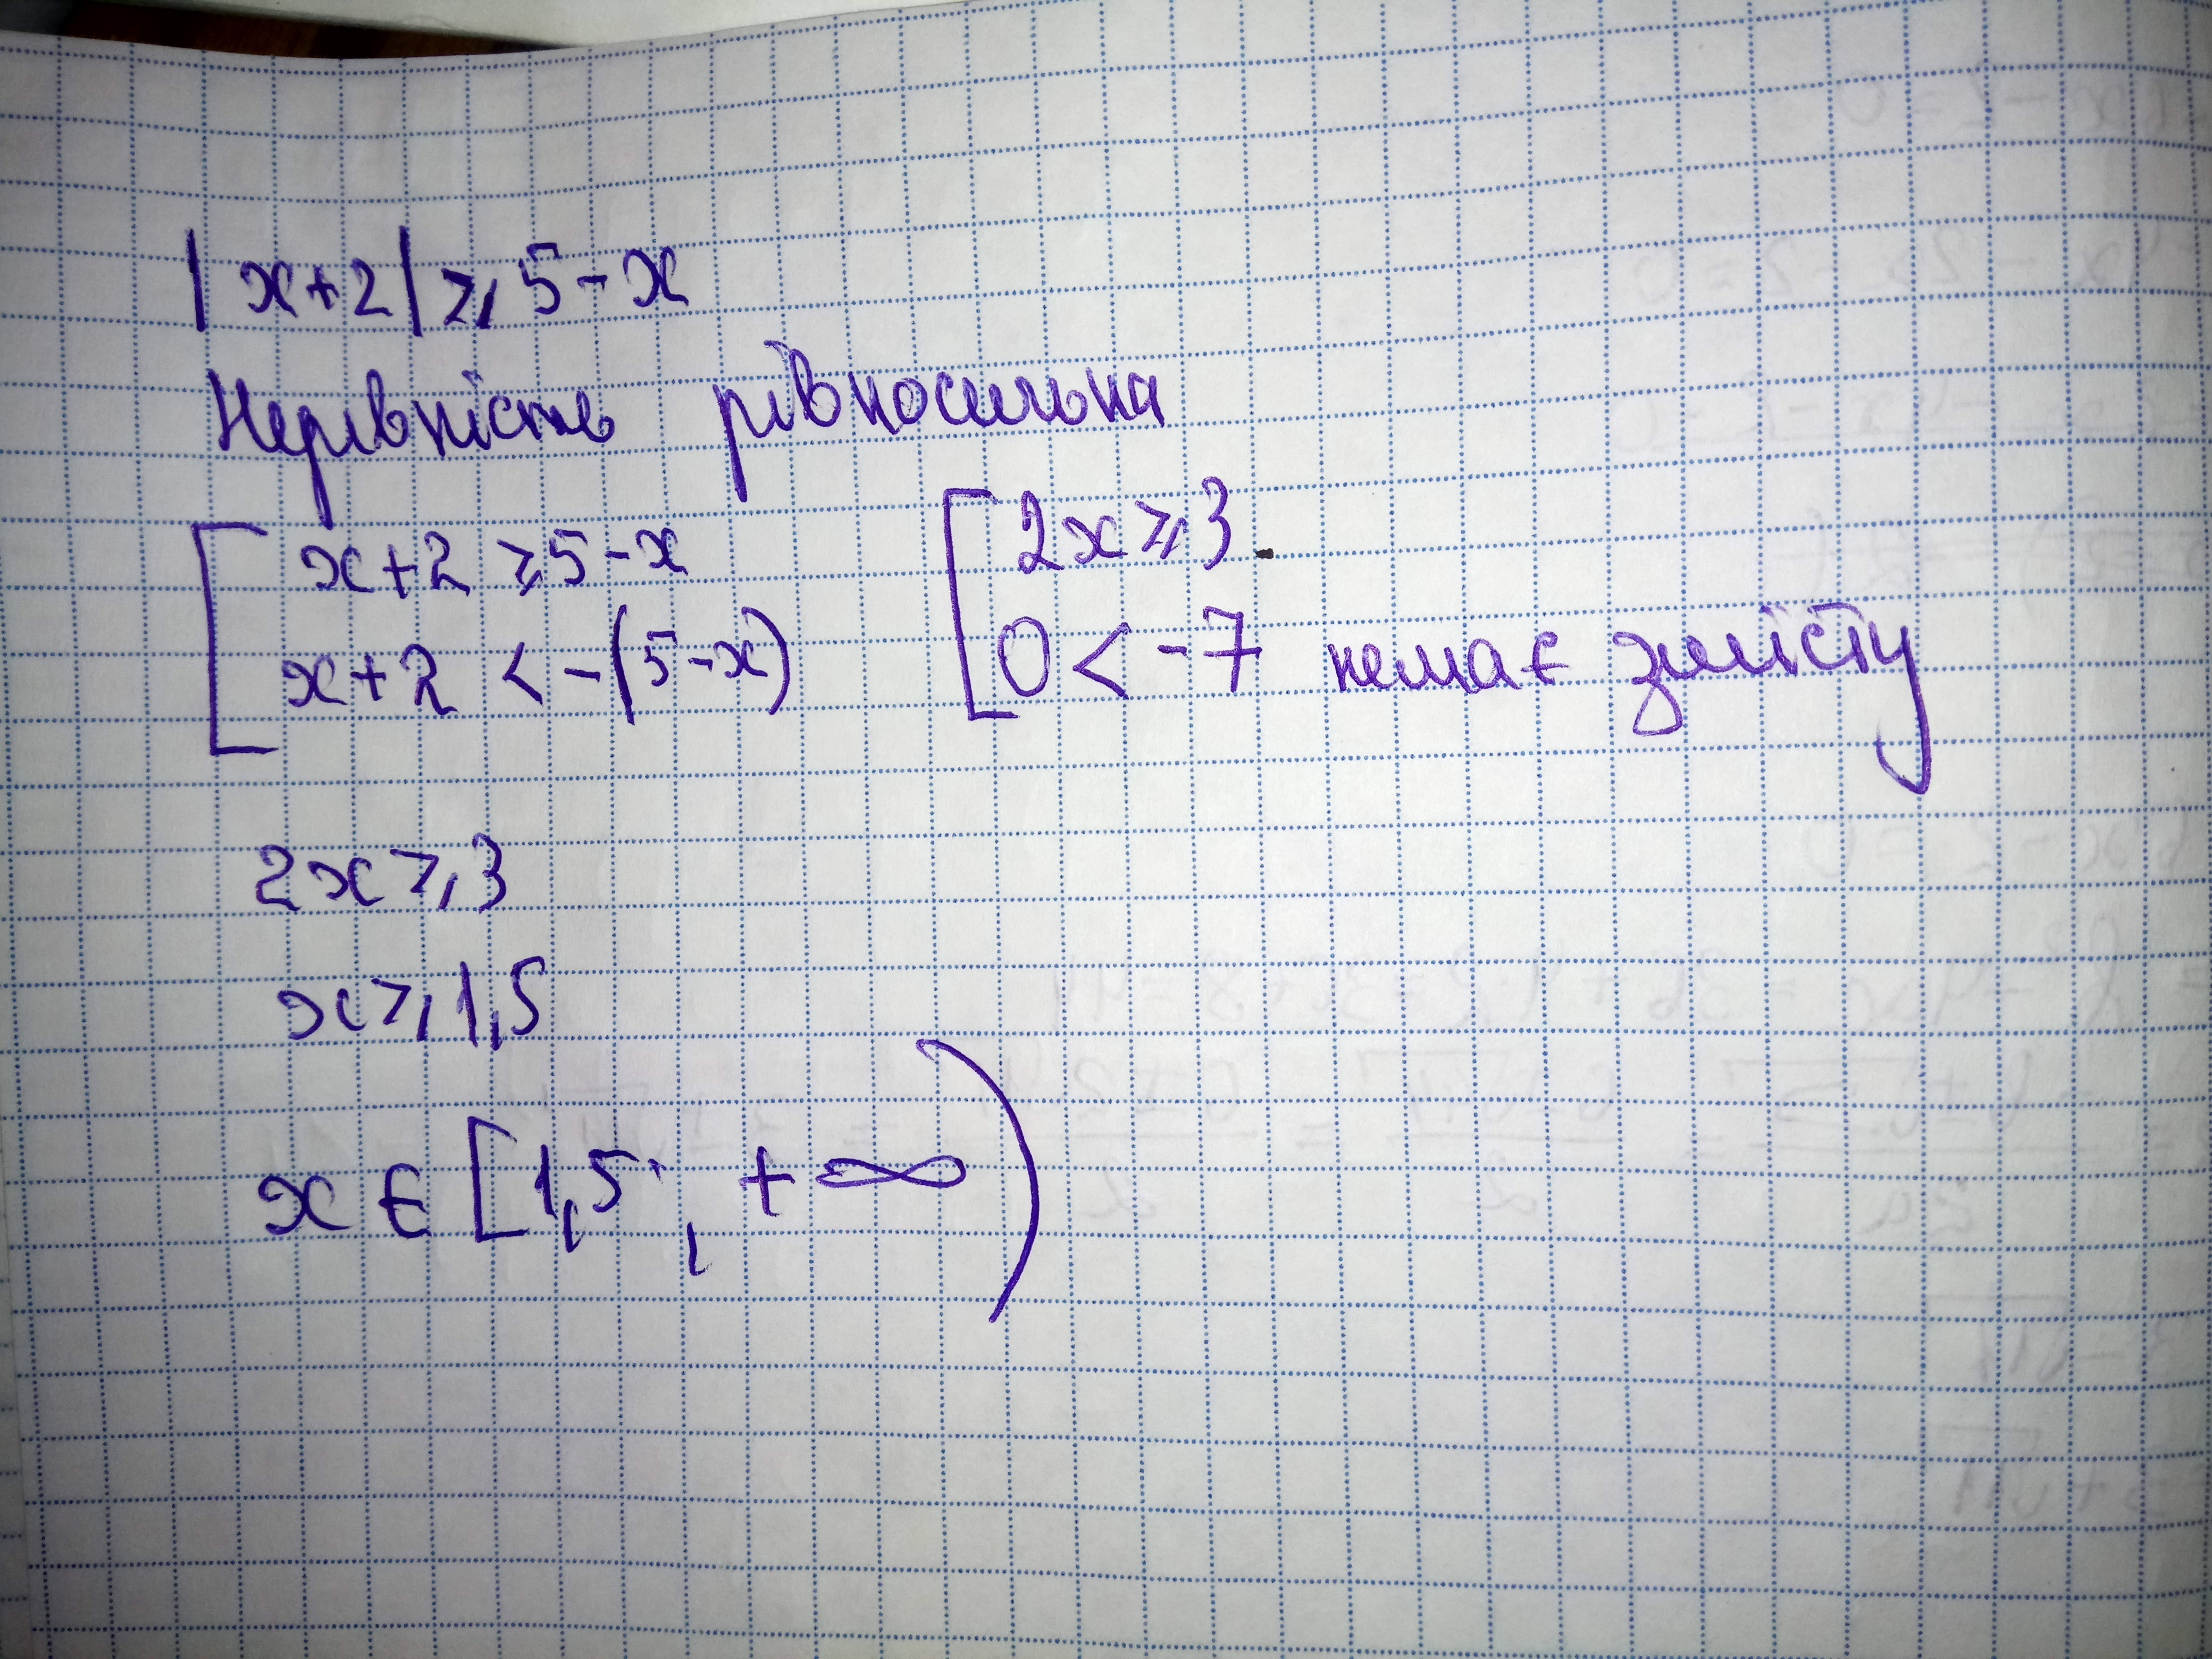 |x+2| ≥ 5-x
Нерівність рівносильна
[ x+2 ≥ 5-x
x+2 < -(5-x)
[ 2x ≥ 3
0 < -7 немає змісту
2x ≥ 3
x ≥ 1,5
x ∈ [1,5; +∞)